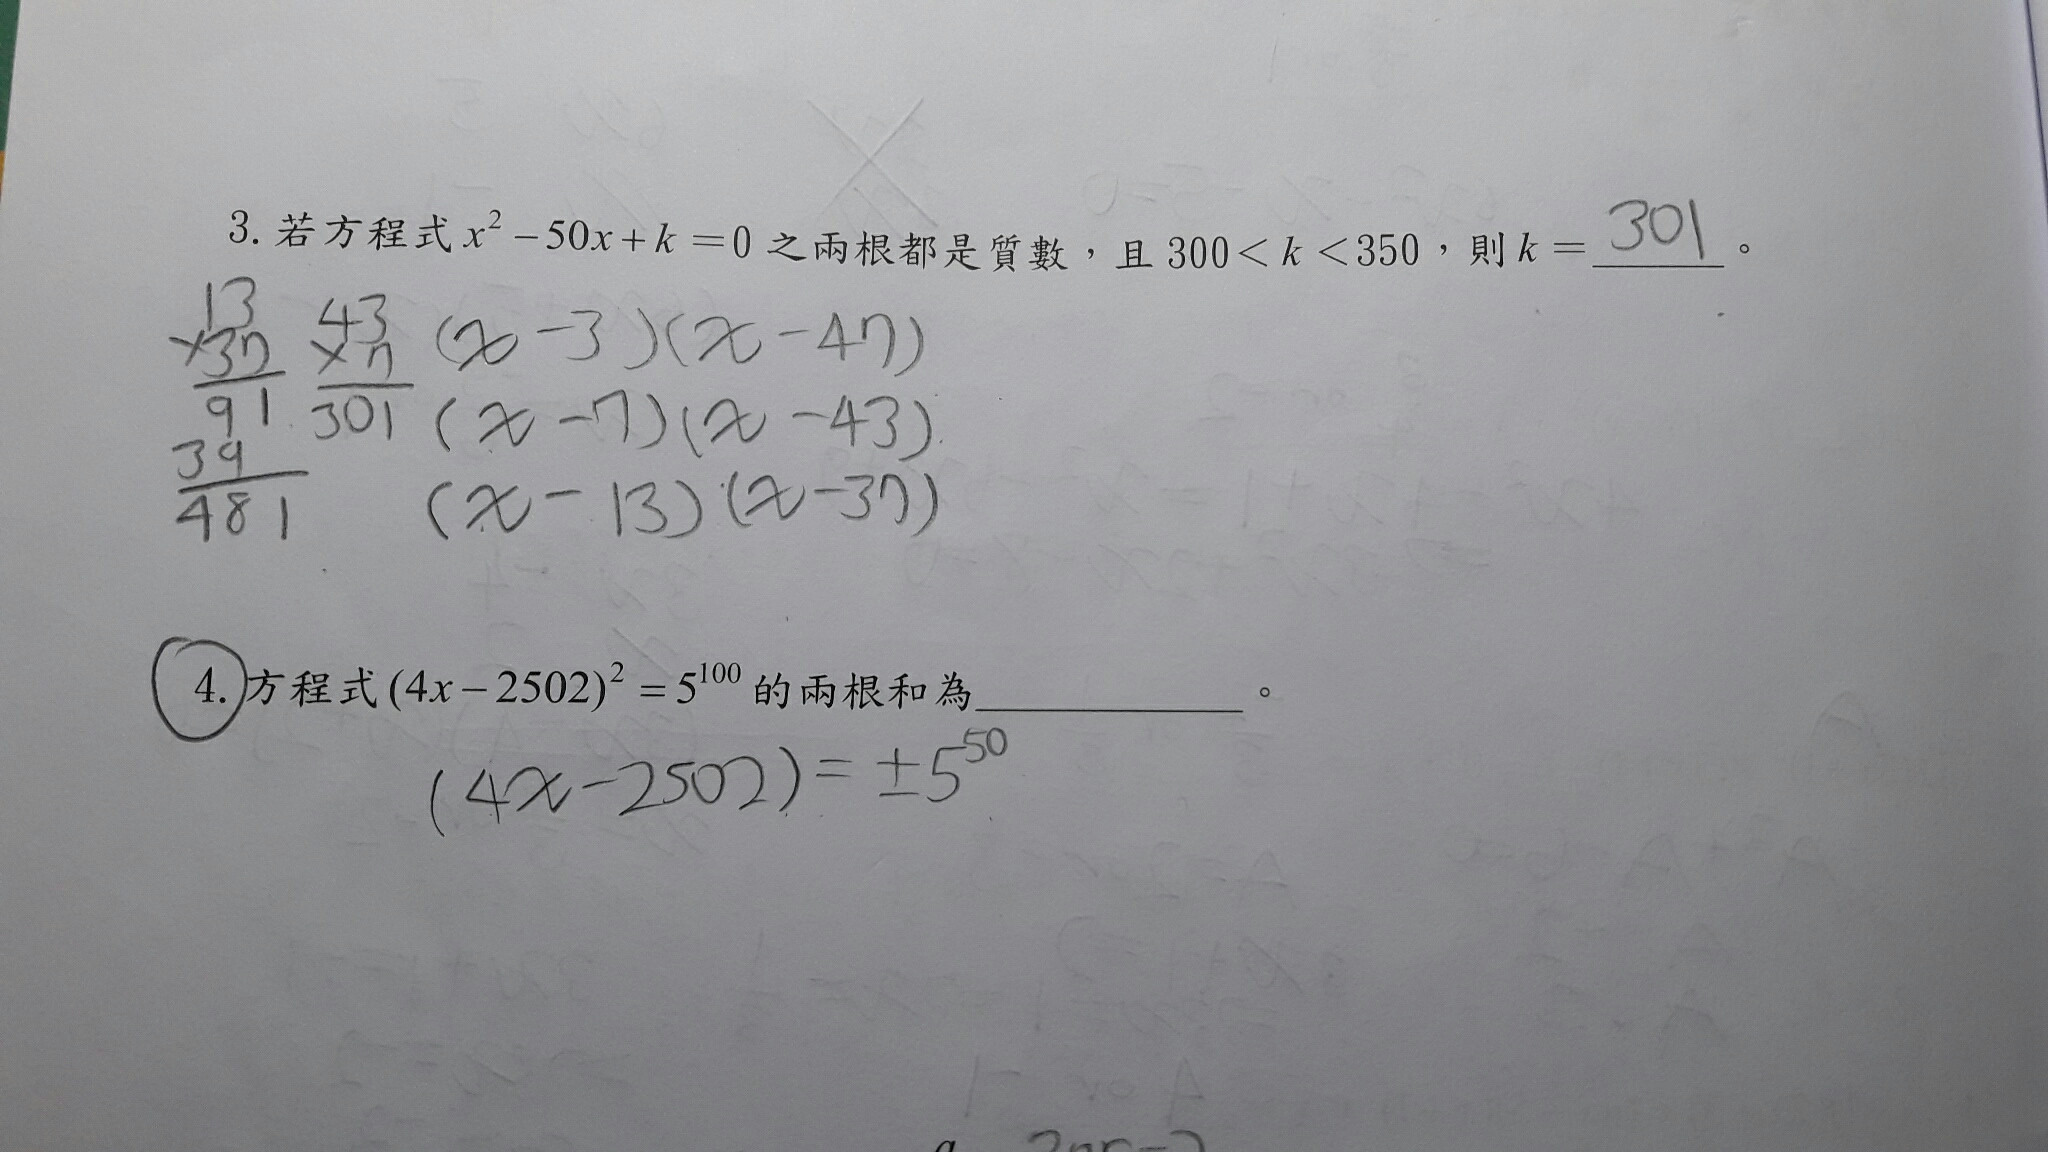 3. 若方程式 x² − 50x + k = 0 之兩根都是質數，且 300 < k < 350，則 k = 301。
13 43 (x − 3)(x − 47)
×37 ×7
91 301 (x − 7)(x − 43)
39
481 (x − 13)(x − 37)
4. 方程式 (4x − 2502)² = 5¹⁰⁰ 的兩根和為__________。
(4x − 2502) = ±5⁵⁰